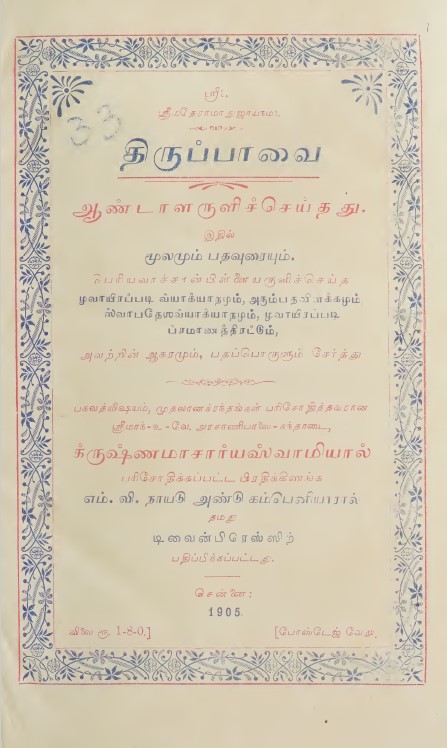 33
ஸ்ரீ:.
ஸ்ரீமதேராமாநுஜாயநம:.
திருப்பாவை
ஆண்டாளருளிச்செய்தது.
இதில்
மூலமும் பதவுரையும்.
பெரியவாச்சான்பிள்ளையருளிச்செய்த
மூவாயிரப்படி வ்யாக்யாநமும், அரும்பதவிளக்கமும்
ஸ்வாபதேஶவ்யாக்யாநமும், மூவாயிரப்படி
ப்ரமாணத்திரட்டும்,
அவற்றின் ஆகரமும், பதப்பொருளும் சேர்த்து
பகவத்விஷயம், முதலானக்ரந்தங்கள் பரிசோதித்தவரான
ஸ்ரீமாந்-உ-வே. அரசாணிபாலை-கந்தாடை,
க்ருஷ்ணமாசார்யஸ்வாமியால்
பரிசோதிக்கப்பட்ட பிரதிக்கிணங்க
எம். வி. நாயடு அண்டு கம்பெனியாரால்
தமது
டிவைன்பிரெஸ்ஸிற்
பதிப்பிக்கப்பட்டது.
சென்னை:
1905.
விலை ரூ. 1-8-0.] [போஸ்டேஜ் வேறு.